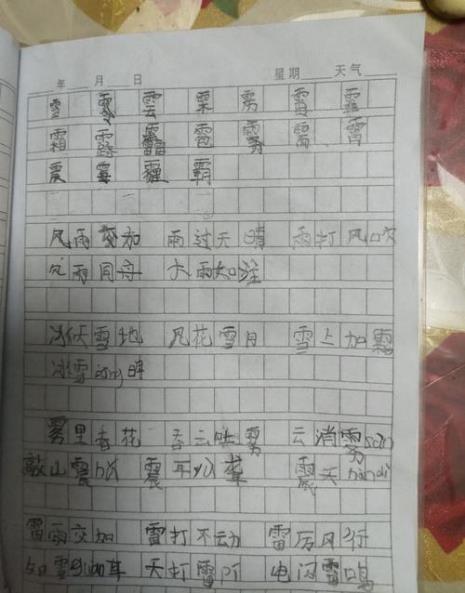 年 月 日 星期 天气
雪 雲
霜 露 雹 雾 雷 霄
震 霉 霾 霸
风雨交加 雨过天晴 雨打风吹
风雨同舟 大雨如注
冰天雪地 风花雪月 雪上加霜
冰雪 jing 明
雾里看花 吞云吐雾 云消雾 sàn
敲山震 hǔ 震耳 yù 聋 震天 hàn dì
雷雨交加 雷打不动 雷厉风行
如雷 guàn 耳 天打雷 pī 电闪雷鸣